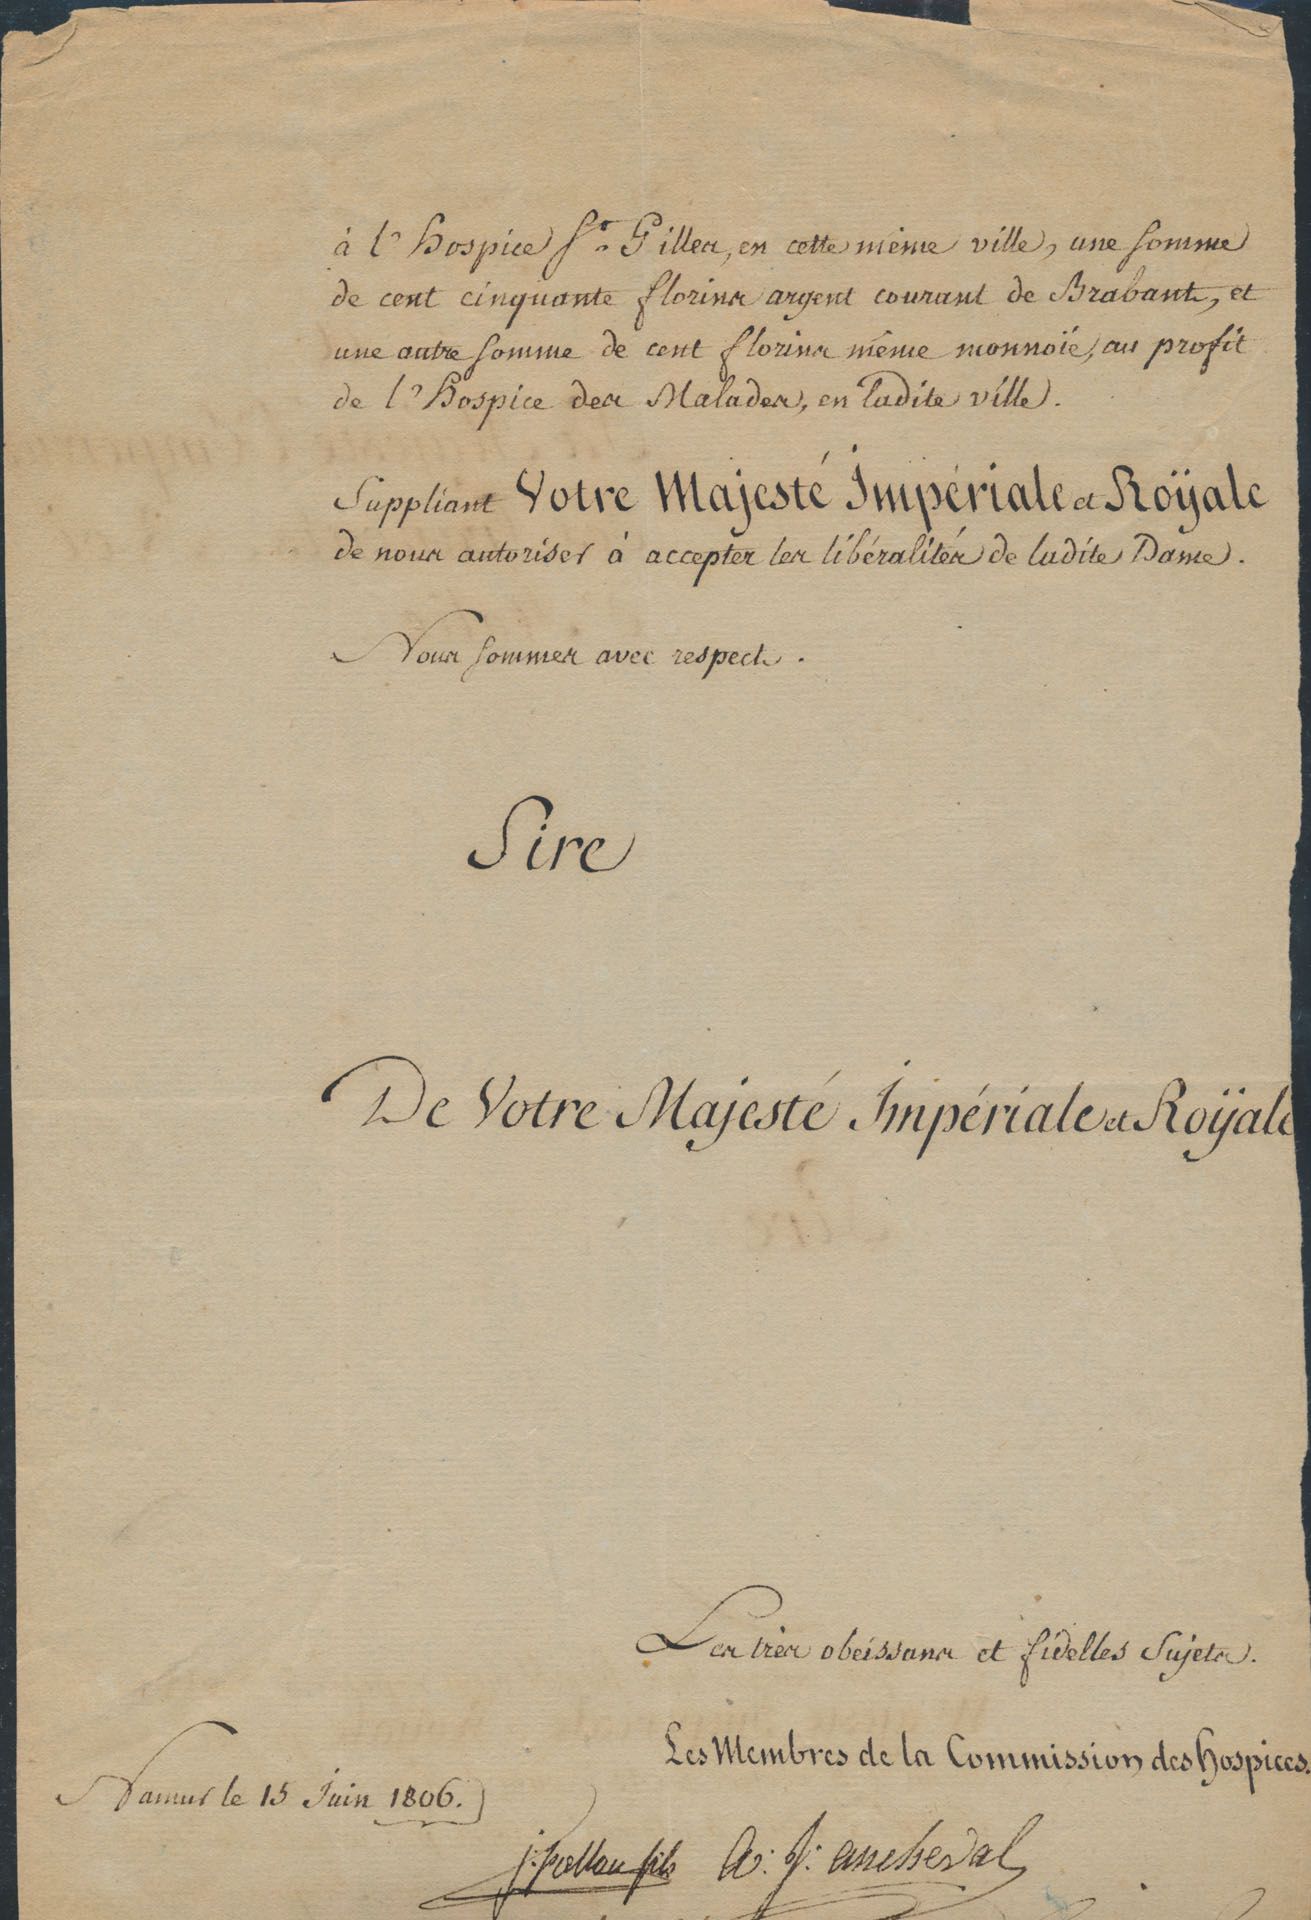 à l'Hospice St. Gilles, en cette même ville, une somme
de cent cinquante florins argent courant de Brabant, et
une autre somme de cent florins même monnoïe, au profit
de l'Hospice des Malades, en ladite ville.
Suppliant Votre Majesté Impériale et Roÿale
de nous autoriser à accepter les libéralités de ladite Dame.
Nous sommes avec respect.
Sire
De Votre Majesté Impériale et Roÿale
Les très obeissans et fidelles Sujets.
Les Membres de la Commission des hospices.
Namur le 15 Juin 1806.
fils A: J: